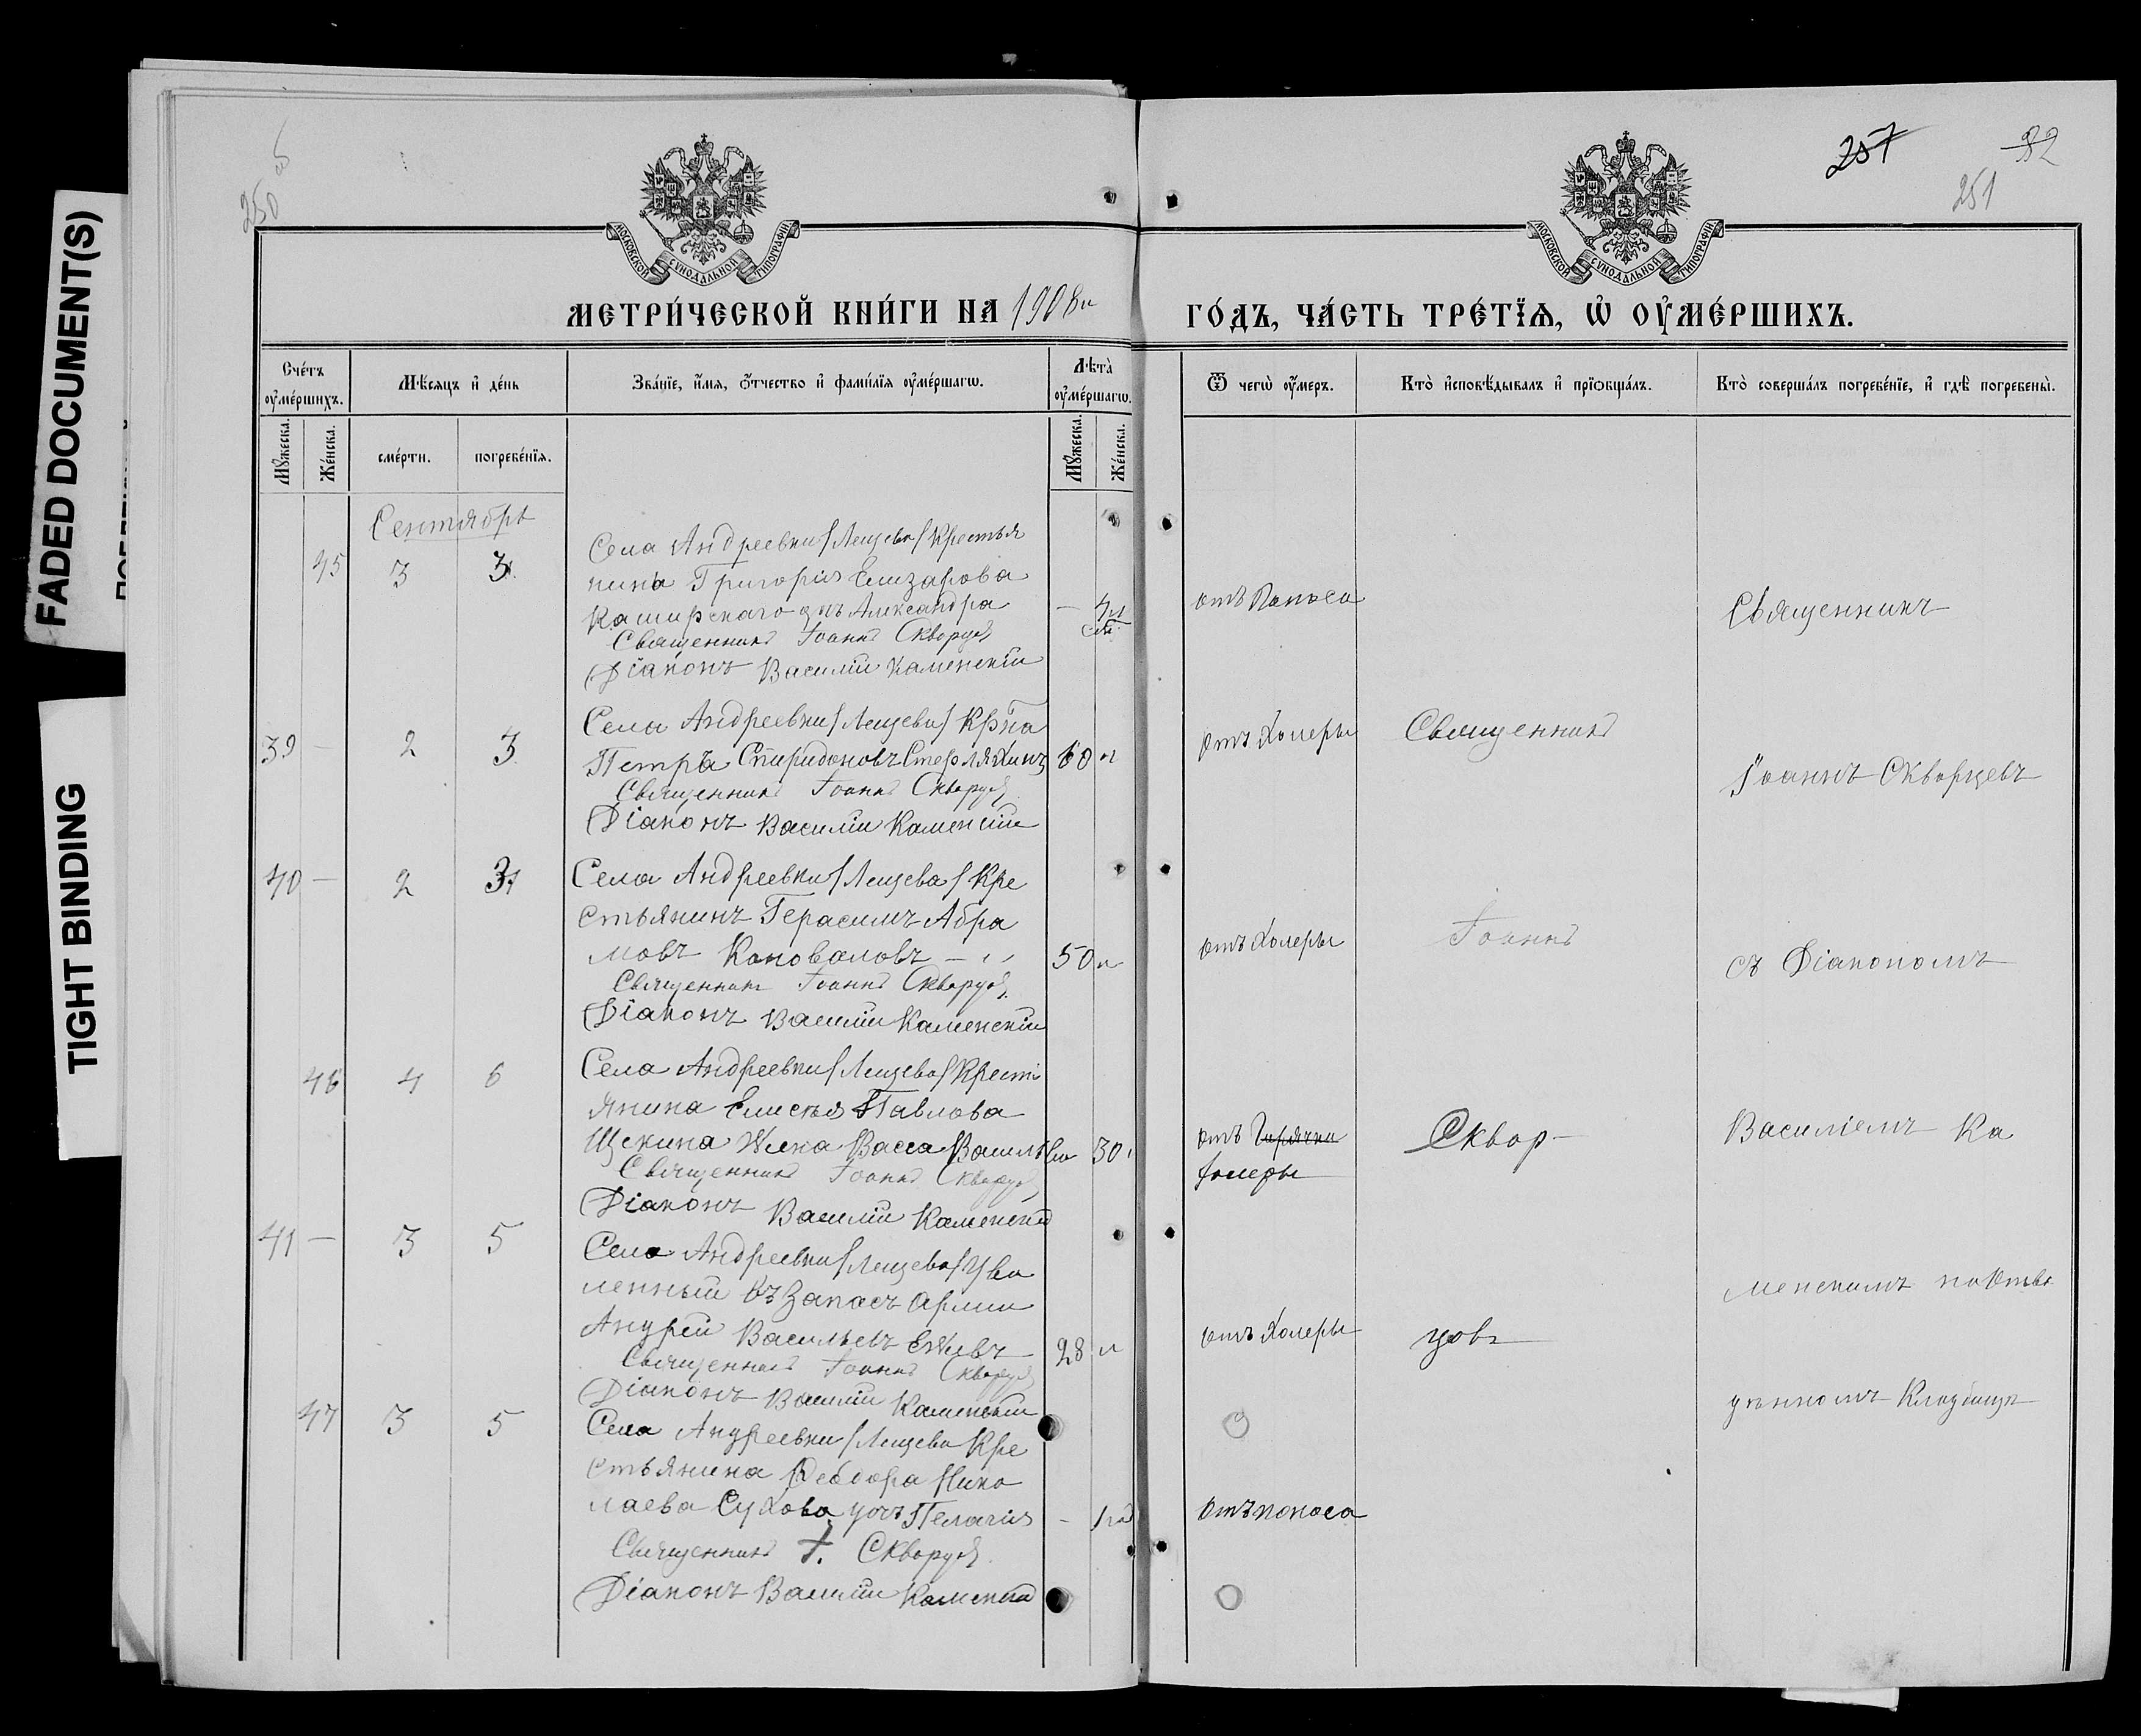 FADED DOCUMENT(S)
TIGHT BINDING
250 об
257
32
251
МОСКОВСКОЙ СѴНОДАЛЬНОЙ ТИПОГРАФІИ
МОСКОВСКОЙ СѴНОДАЛЬНОЙ ТИПОГРАФІИ
МЕТРИ́ЧЕСКОЙ КНИ́ГИ НА 1908й
ГО́ДЪ, ЧА́СТЬ ТРЕ́ТЇѦ, Ѡ҆ ОУ҆МЕ́РШИХЪ.
Сче́тъ оу҆ме́ршихъ.
Мѣ́сяцъ и҆ де́нь
Зва́нїе, и҆́мя, ѻ҆́тчество и҆ фами́лїя оу҆ме́ршагѡ.
Лѣта̀ оу҆ме́ршагѡ.
Ѿ чегѡ̀ оу҆́меръ.
Кто̀ и҆сповѣ́дывалъ и҆ прїѻбща́лъ.
Кто̀ соверша́лъ погребе́нїе, и҆ гдѣ̀ погребены̀.
Мꙋ́жеска.
Же́нска.
сме́рти.
погребе́нїя.
Мꙋ́жеска.
Же́нска.
Сентябрь
45 3 3
Села Андреевки/Лещева/Крестья
нина Григорія Елизарова
Каширскаго дчъ Александра
Священникъ Іоаннъ Скворцовъ
Діаконъ Василій Каменскій
отъ Поноса
Священникъ
39 — 2 3
Села Андреевки/Лещева/Крна
Петръ Спиридоновъ Стерляхинъ 60 л
Священникъ Іоаннъ Скворцовъ
Діаконъ Василій Каменскій
отъ Холеры
Священникъ
Іоаннъ Скворцевъ
40 — 2 3
Села Андреевки/Лещева/Кре
стьянинъ Герасимъ Абра
мовъ Коноваловъ — 50 л
Священникъ Іоаннъ Скворцовъ
Діаконъ Василій Каменскій
отъ Холеры
Іоаннъ
съ Діакономъ
46 4 6
Села Андреевки/Лещева/Кресть
янина Елисея Павлова
Щекина Жена Васса Васильева 30
Священникъ Іоаннъ Скворцовъ
Діаконъ Василій Каменскій
отъ Горячки
холеры
Сквор-
Василіемъ Ка
41 — 3 5
Села Андреевки/Лещева/Уво
ленный въ Запасъ Арміи
Андрей Васильевъ Ежевъ 28 л
Священникъ Іоаннъ Скворцовъ
Діаконъ Василій Каменскій
отъ Холеры
цовъ
менскимъ на Отве
47 3 5
Села Андреевки/Лещева Кре
стьянина Ѳеодора Нико
лаева Сухова дочь Пелагія — 1 год
Священникъ І. Скворцовъ
Діаконъ Василій Каменскій
Отъ поноса
денномъ Кладбищѣ